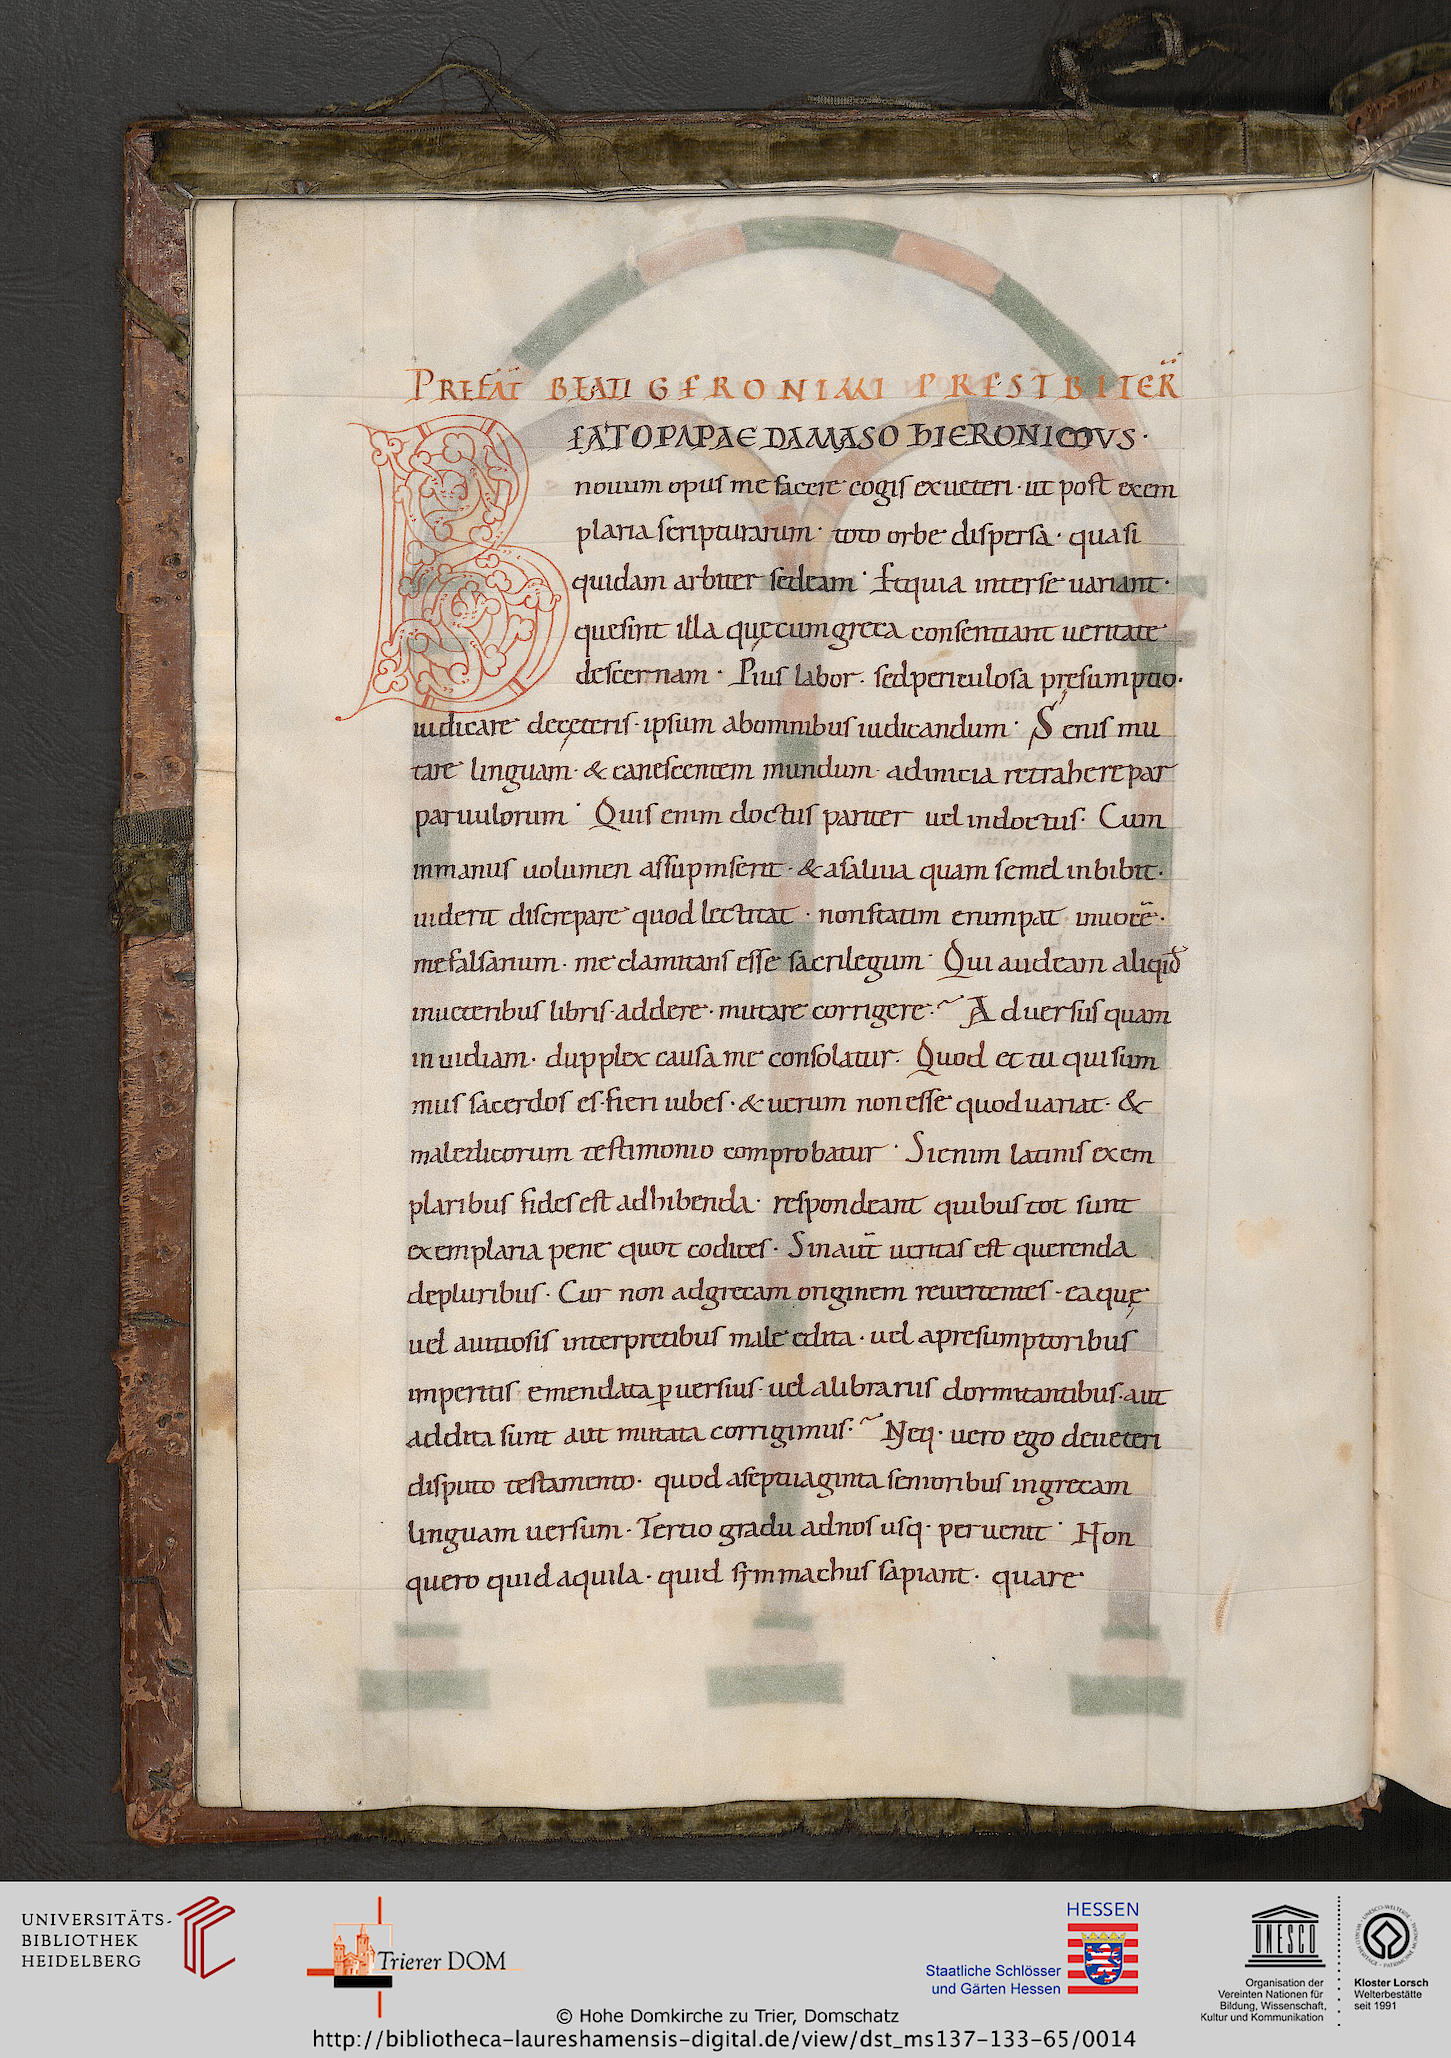 PREFAT̄ BEATI GERONIMI PRESTBITER̄
BEATO PAPAE DAMASO HIERONIMVS·
nouum opus me facere cogis exueteri · ut post exem
plaria scripturarum · toto orbe dispersa · quasi
quidam arbiter sedeam · Etquia interse uariant ·
quesint illa quę cum greca consentiant ueritate
descernam · Pius labor · sedpericulosa pręsumptio ·
iudicare decęteris · ipsum abomnibus iudicandum · Senis mu
tare linguam · & canescentem mundum · adinicia retrahere par
paruulorum · Quis enim doctus pariter uel indoctus · Cum
inmanus uolumen assupmserit · & asaliua quam semel inbibit ·
uiderit discrepare quod lectitat · nonstatim erumpat inuocē ·
mefalsarium · me clamitans esse sacrilegum · Qui audeam aliqid
inueteribus libris · addere · mutare corrigere · Aduersus quam
inuidiam · dupplex causa me consolatur · Quod et tu qui sum
mus sacerdos es · fieri iubes · & uerum non esse quod uariat · &
maledicorum testimonio comprobatur · Sienim latinis exem
plaribus fides est adhibenda · respondeant quibus tot sunt
exemplaria pene quot codices · Sinaut̄ ueritas est querenda
depluribus · Cur non adgrecam originem reuertentes · ea quę
uel auitiosis interpretibus male edita · uel apresumptoribus
imperitis emendata ꝑuersius · uel alibrariis dormitantibus · aut
addita sunt aut mutata corrigimus · Neq · uero ego deueteri
disputo testamento · quod aseptuaginta senioribus ingrecam
linguam uersum · Tertio gradu adnos usq · peruenit · Non
quero quid aquila · quid symmachus sapiant · quare
UNIVERSITÄTS-
BIBLIOTHEK
HEIDELBERG
Trierer DOM
HESSEN
Staatliche Schlösser
und Gärten Hessen
UNESCO
Organisation der
Vereinten Nationen für
Bildung, Wissenschaft,
Kultur und Kommunikation
Kloster Lorsch
Welterbestätte
seit 1991
© Hohe Domkirche zu Trier, Domschatz
http://bibliotheca-laureshamensis-digital.de/view/dst_ms137-133-65/0014